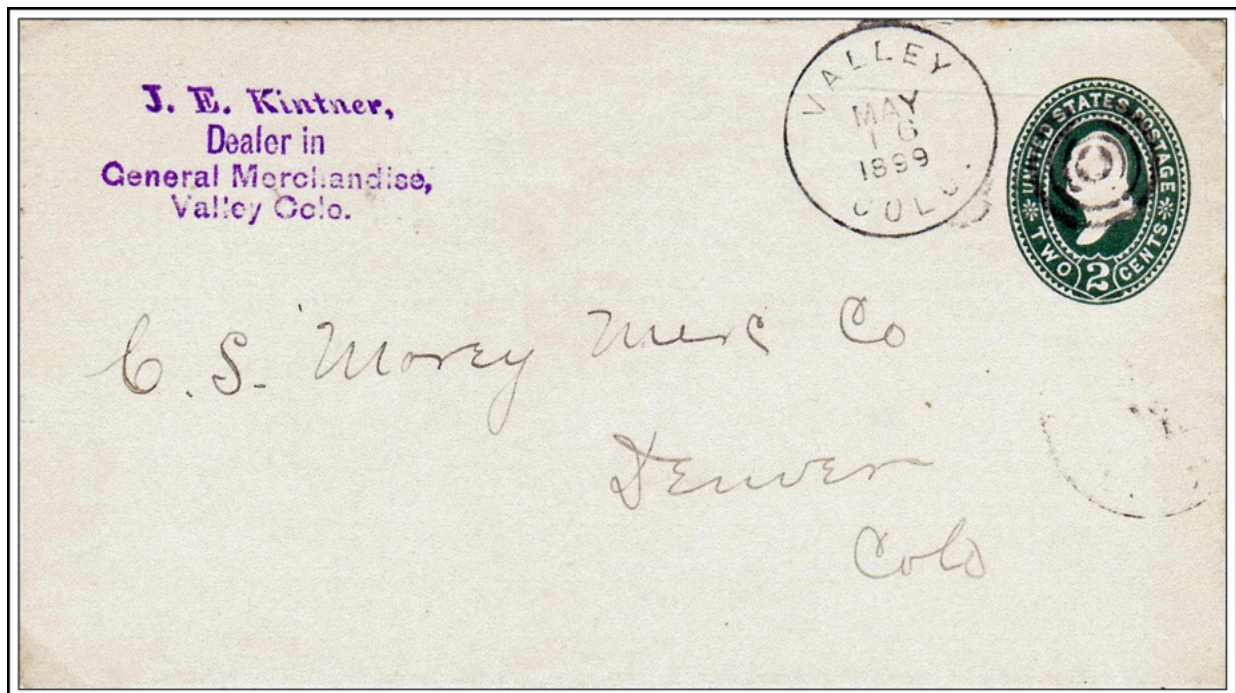 J. E. Kintner,
Dealer in
General Merchandise,
Valley Colo.
VALLEY
MAY
16
1899
COLO.
UNITED STATES POSTAGE
TWO 2 CENTS
C. S. Morey Merc Co
Denver
Colo